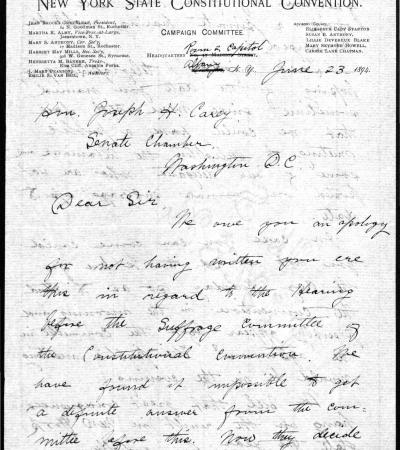 NEW YORK STATE CONSTITUTIONAL CONVENTION.
JEAN BROOKS GREENLEAF, President,
N. Goodman St., Rochester.
MARTHA R. ALMY, Vice-Pres.-at-Large,
Jamestown, N. Y.
MARY S. ANTHONY, Cor. Sec'y,
Madison St., Rochester.
HARRIET MAY MILLS, Rec. Sec'y,
W. Genesee St., Syracuse.
HENRIETTA M. BANKER, Treas.,
Ausable Forks.
Auditors.
CAMPAIGN COMMITTEE
HEADQUARTERS Capitol
Albany N. Y. June 23 1894.
ADVISORY
ELIZABETH CADY STANTON
SUSAN B. ANTHONY,
LILLIE DEVEREUX BLAKE
MARY SEYMOUR HOWELL,
CARRIE LANE CHAPMAN.
Hon. Joseph H. Carey
Senate Chamber.
Washington D.C.
Dear Sir
We owe you an apology
for not having written you ere
this in regard to the Hearing
before the Suffrage Committee of
the Constitutional Convention. We
have found it impossible to get
a definite answer from the com-
mittee before this. Now they decide